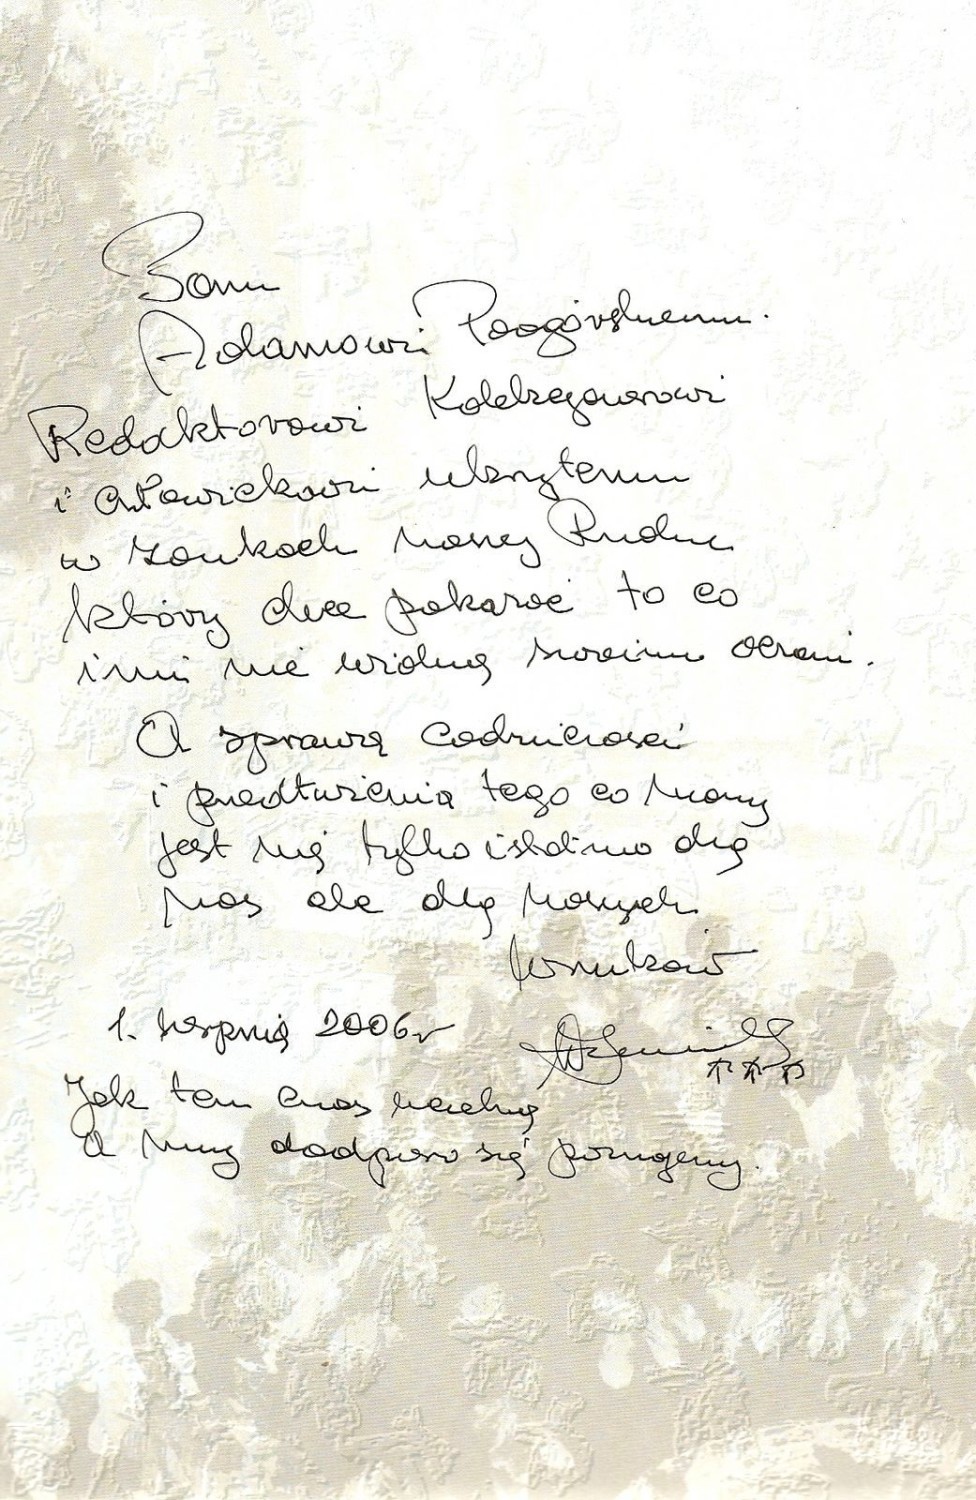 Panu
Adamowi
Redaktorowi Kolekcjonerowi
i człowiekowi ukrytemu
w zaułkach Nowej Rudy
który chce pokazać to co
inni nie widzą swoimi oczami.
A sprawą codzienności
i przedłużenia tego co mamy
jest nie tylko istotne dla
nas ale dla naszych
wnuków
1. sierpnia 2006r
Jak ten czas ucieka
a my dodporo się poznajemy.